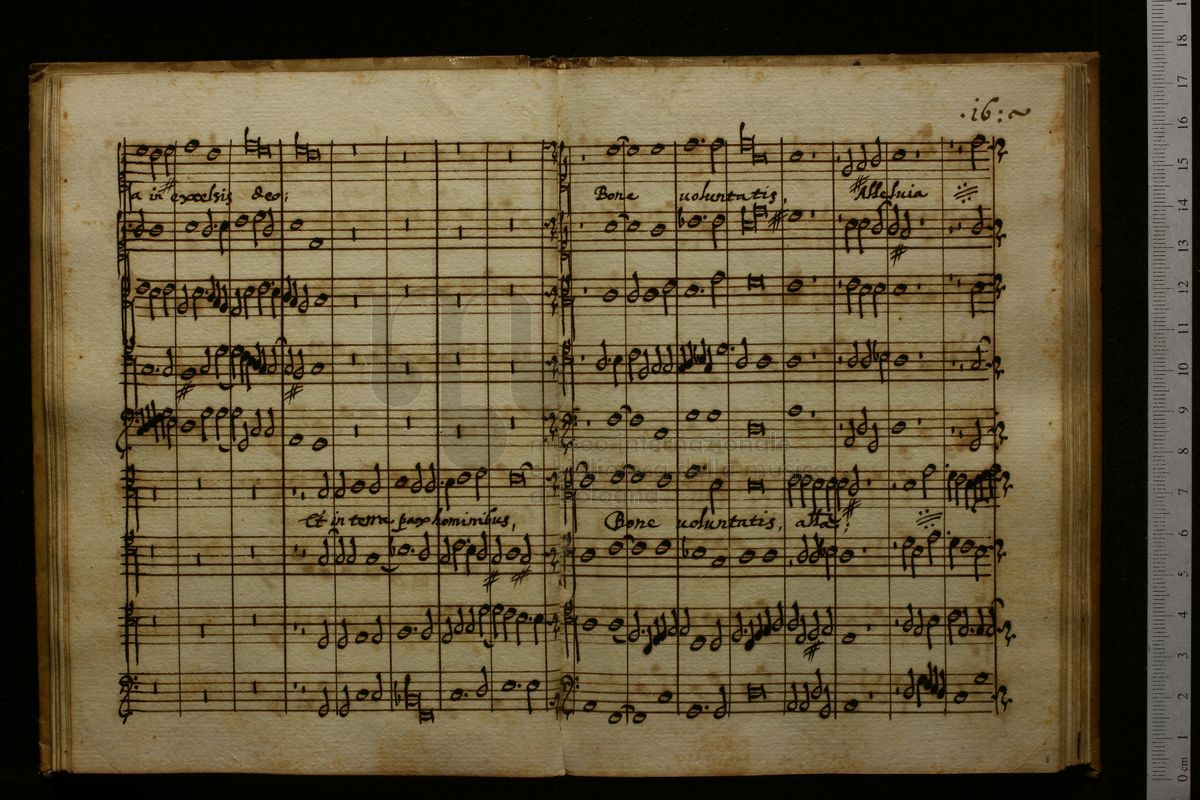 .16:~
la in excelsis deo;
Bone voluntatis, Alleluia
Et in terra pax hominibus,
Bone voluntatis, alla:
museo internazionale
e biblioteca della musica
di bologna
0 cm 1 2 3 4 5 6 7 8 9 10 11 12 13 14 15 16 17 18